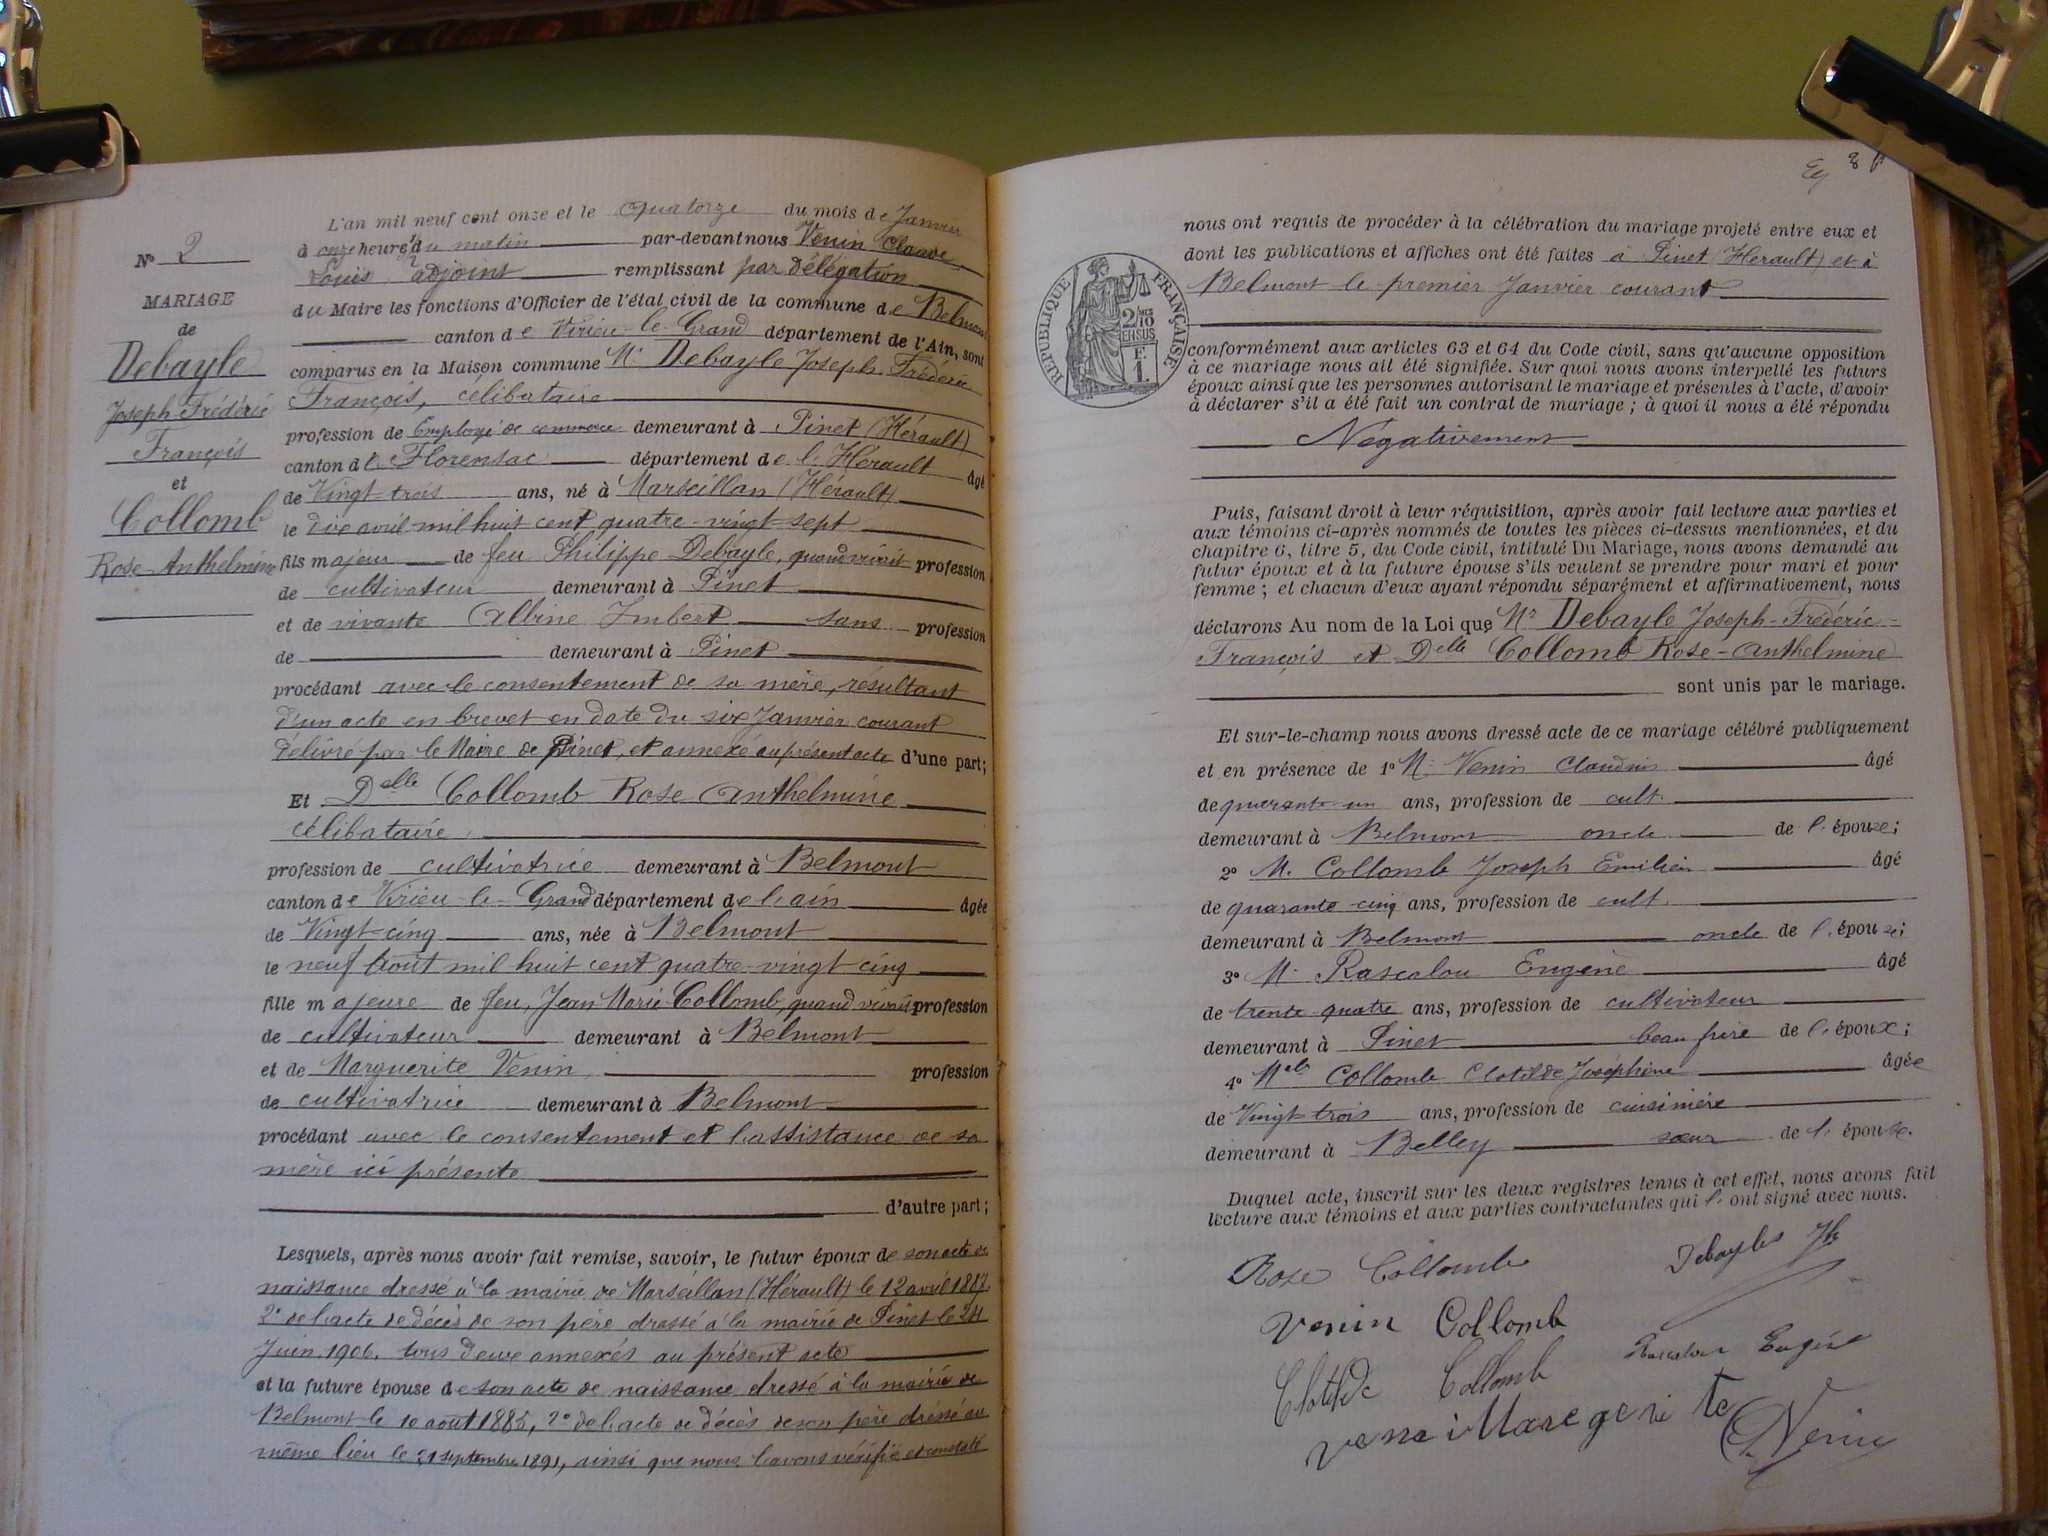 N° 2
MARIAGE
de
Debayle
Joseph-Frédéric
François
et
Collomb
Rose-Anthelmine
L'an mil neuf cent onze et le Quatorze du mois de Janvier
à onze heures du matin par-devant nous Venin Claude
Louis, adjoint remplissant par Délégation
du Maire les fonctions d'Officier de l'état civil de la commune de Belmont
canton de Virieu-le-Grand département de l'Ain, sont
comparus en la Maison commune Mr Debayle Joseph-Frédéric
François, célibataire
profession de Employé de commerce demeurant à Pinet (Hérault)
canton de Florensac département de l'Hérault âgé
de Vingt-trois ans, né à Marseillan (Hérault)
le dix avril mil huit cent quatre-vingt-sept
fils majeur de feu Philippe Debayle, quand vivait profession
de cultivateur demeurant à Pinet
et de vivante Albine Imbert sans profession
de demeurant à Pinet
procédant avec le consentement de sa mère, résultant
d'un acte en brevet en date du six Janvier courant
délivré par le Maire de Pinet, et annexé au présent acte d'une part;
Et Delle Collomb Rose Anthelmine
célibataire
profession de cultivatrice demeurant à Belmont
canton de Virieu-le-Grand département de l'ain âgée
de Vingt-cinq ans, née à Belmont
le neuf Août mil huit cent quatre-vingt cinq
fille majeure de feu, Jean Marie Collomb, quand vivait profession
de cultivateur demeurant à Belmont
et de Marguerite Venin, profession
de cultivatrice demeurant à Belmont
procédant avec le consentement et l'assistance de sa
mère ici présente
d'autre part;
Lesquels, après nous avoir fait remise, savoir, le futur époux de son acte de
naissance dressé à la mairie de Marseillan (Hérault) le 12 avril 1887
2° de l'acte de décès de son père dressé à la mairie de Pinet le 24
Juin 1906, tous deux annexés au présent acte
et la future épouse de son acte de naissance dressé à la mairie de
Belmont le 10 août 1885, 2° de l'acte de décès de son père dressé au
même lieu le 21 septembre 1891, ainsi que nous l'avons vérifié et constaté
nous ont requis de procéder à la célébration du mariage projeté entre eux et
dont les publications et affiches ont été faites à Pinet (Hérault) et à
Belmont le premier Janvier courant
RÉPUBLIQUE FRANÇAISE
2/10 EN SUS
F.
1.
conformément aux articles 63 et 64 du Code civil, sans qu'aucune opposition
à ce mariage nous ait été signifiée. Sur quoi nous avons interpellé les futurs
époux ainsi que les personnes autorisant le mariage et présentes à l'acte, d'avoir
à déclarer s'il a été fait un contrat de mariage; à quoi il nous a été répondu
Négativement
Puis, faisant droit à leur réquisition, après avoir fait lecture aux parties et
aux témoins ci-après nommés de toutes les pièces ci-dessus mentionnées, et du
chapitre 6, titre 5, du Code civil, intitulé Du Mariage, nous avons demandé au
futur époux et à la future épouse s'ils veulent se prendre pour mari et pour
femme; et chacun d'eux ayant répondu séparément et affirmativement, nous
déclarons Au nom de la Loi que Mr Debayle Joseph-Frédéric-
François et Delle Collomb Rose-Anthelmine
sont unis par le mariage.
Et sur-le-champ nous avons dressé acte de ce mariage célébré publiquement
et en présence de 1° M. Venin Claudius âgé
de quarante-un ans, profession de cult.
demeurant à Belmont oncle de l'épouse;
2° M. Collomb Joseph Emilien âgé
de quarante-cinq ans, profession de cult.
demeurant à Belmont oncle de l'épouse;
3° M. Rascalou Eugène âgé
de trente quatre ans, profession de cultivateur
demeurant à Pinet beau frère de l'époux;
4° Melle Collomb Clotilde Joséphine âgée
de Vingt-trois ans, profession de cuisinière
demeurant à Belley sœur de l'épouse.
Duquel acte, inscrit sur les deux registres tenus à cet effet, nous avons fait
lecture aux témoins et aux parties contractantes qui l'ont signé avec nous.
Rose Collomb Debayles Jh
Venin Collomb
Rascalou Eugène
Clotilde Collomb
Venin Maregerite Venin